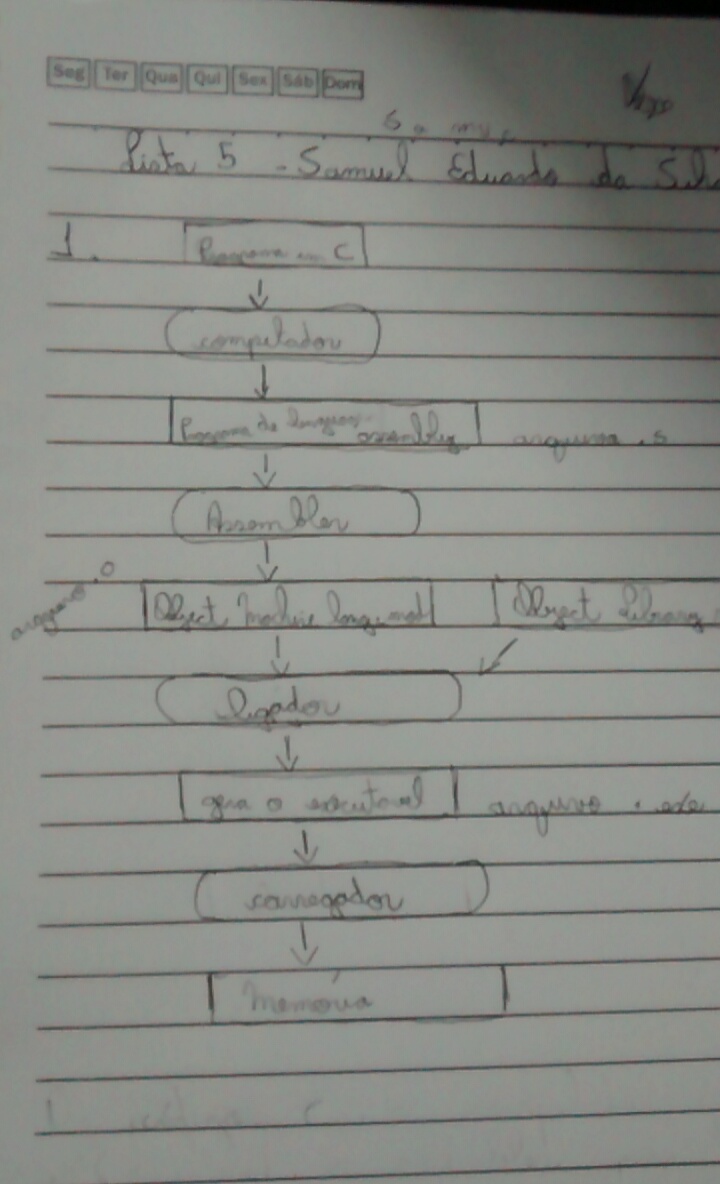 Seg Ter Qua Qui Sex Sáb Dom
Lista 5 - Samuel Eduardo da Silva
1. Programa em C
compilador
Programa de linguagem assembly arquivo .s
Assembler
arquivo .o
Object Module Object Library
ligador
gera o executavel arquivo .exe
carregador
Memória